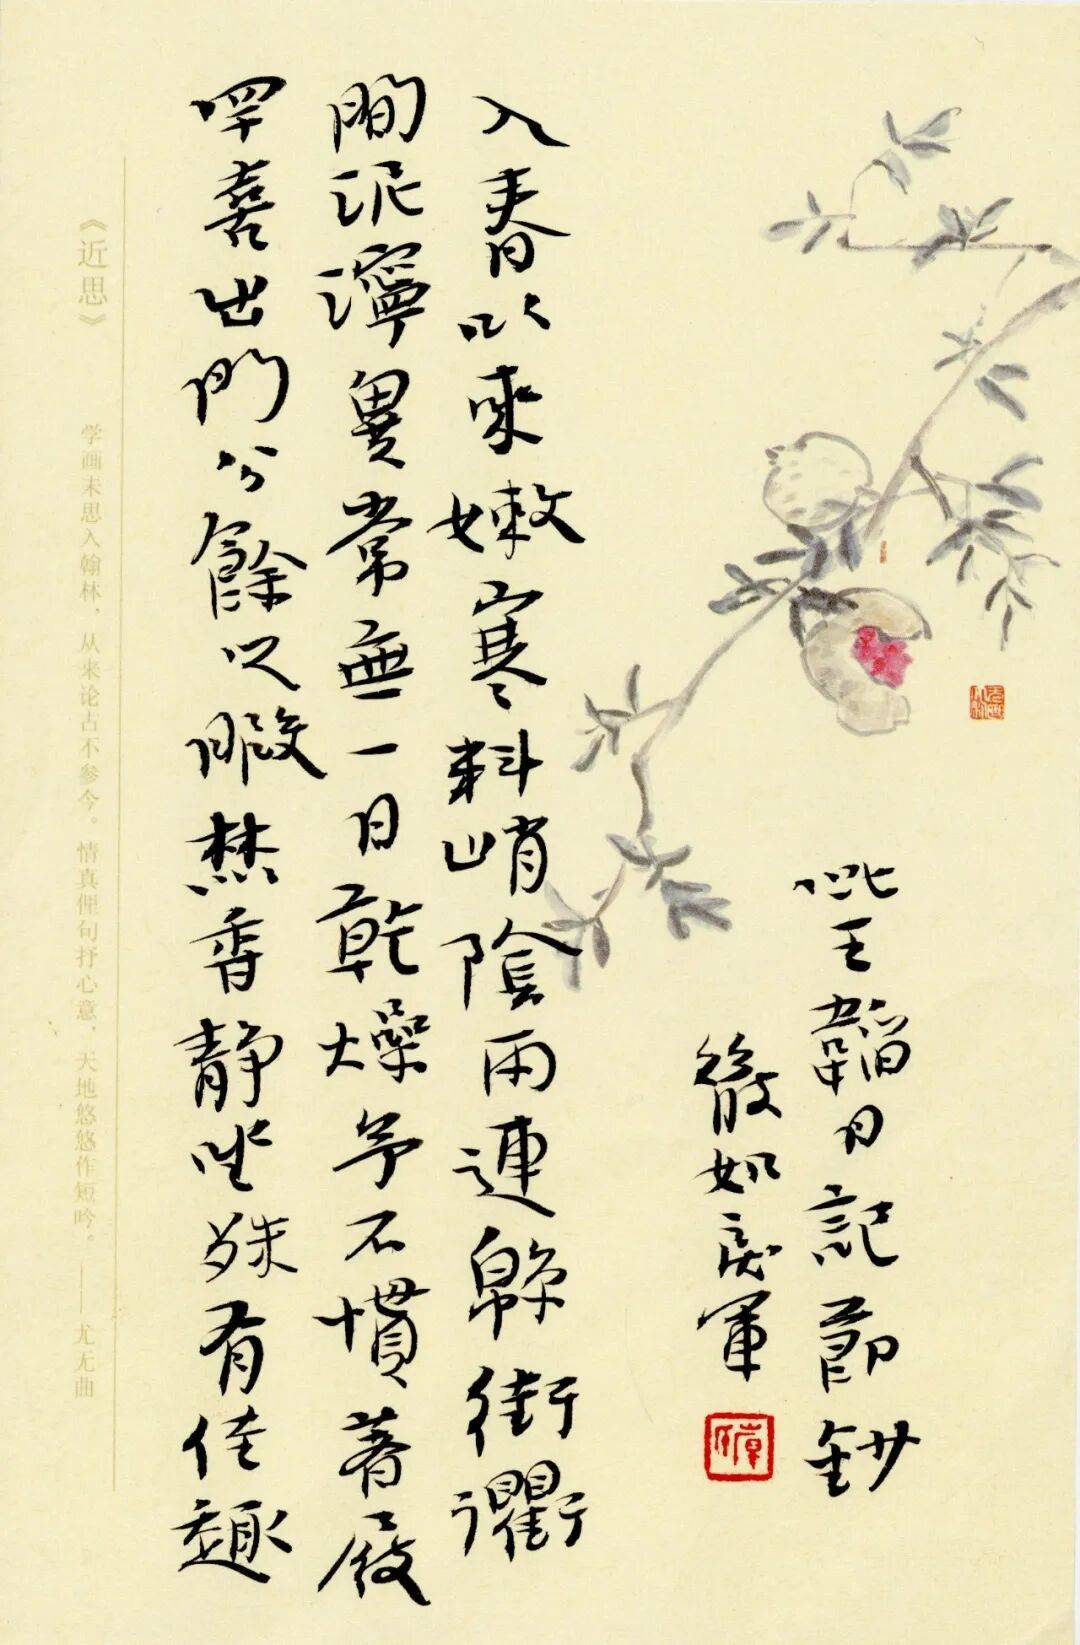 入春以來嫩寒料峭陰雨連緜街衢
間泥濘異常無一日乾燥予不慣著屐
罕喜出門公餘之暇焚香靜坐殊有佳趣
此王韜日記節鈔
如軍
《近思》
学画未思入翰林，从来论古不参今。情真俚句抒心意，天地悠悠作短吟。——尤无曲